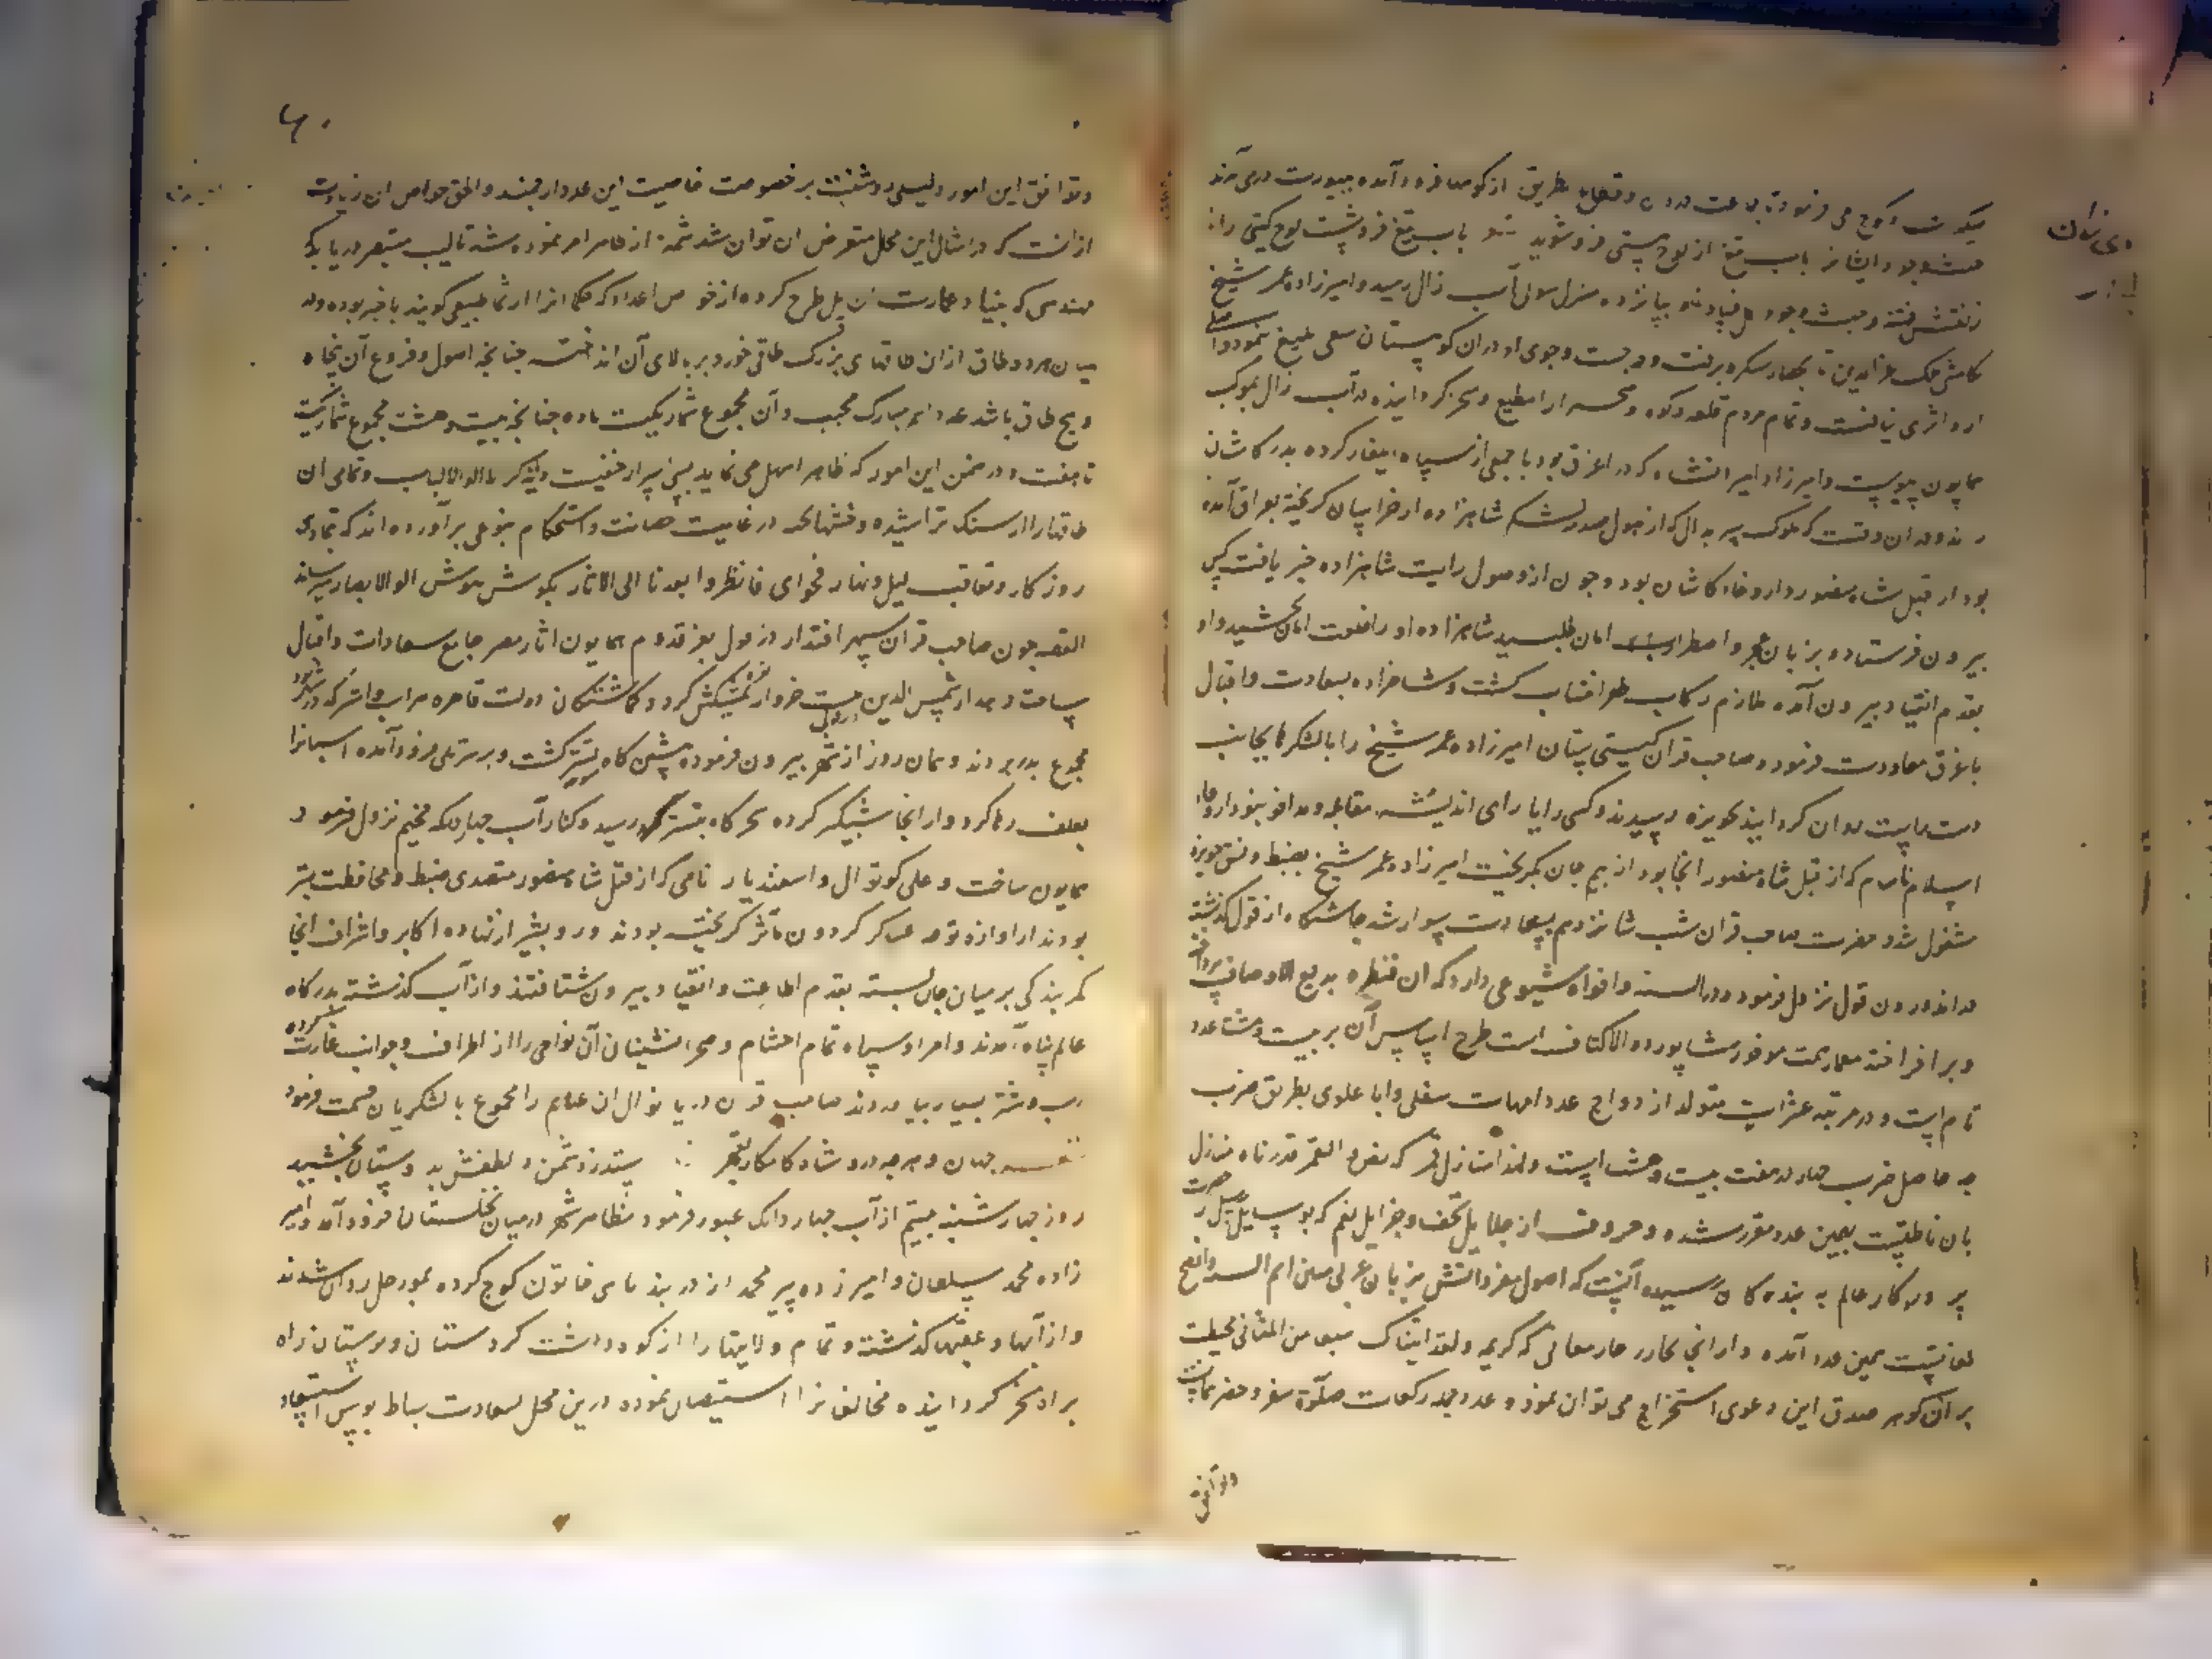 میگوت و کوچ می فرمود تا جماعت و قطاع طریق از کوهها فرود آمده بصورت درمی آمدند
بآب تیغ از لوح هستی فرو شوید بآب تیغ فرو شست لوح گیتی را
منزل سوی آب زال رسید و امیرزاده عمر شیخ
ملک عزالدین برفت و در جست و جوی او در آن کوهستان سعی بلیغ نمود و اصلا
از و اثری نیافت و تمام مردم قلعه و کوه و صحرا را مطیع و مسخر گردانیده در آب زال بموکب
همایون پیوست و امیرزاده امیرانشاه که در اغرق بود با جمعی از سپاه ایلغار کرده بدر کاشان
راند و در آن وقت که ملوک سربدال که از هول صدر لشکر شاهزاده از خراسان گریخته بعراق آمده
بود از قبل شاه منصور داروغاء کاشان بود و چون از وصول رایت شاهزاده خبر یافت کس
بیرون فرستاد و بزبان عجز و اضطرار امان طلبید شاهزاده او را خلعت امان بخشید و او
بقدم انقیاد بیرون آمده ملازم رکاب ظفر انتساب گشت و شاهزاده بسعادت و اقبال
باغرق معاودت فرمود و صاحب قران گیتی ستان امیرزاده عمر شیخ را با لشکر بجانب
دست راست روان گردانید بحویزه رسیدند و کسی را یارای اندیشه مقابله و مدافعه نبود داروغاء
اسلام نام که از قبل شاه منصور آنجا بود از بیم جان بگریخت امیرزاده عمر شیخ بضبط و نسق حویزه
مشغول شد و حضرت صاحب قران شب شانزدهم بسعادت سوار شد چاشتگاه از قول گذشته
در اندرون قول نزول فرمود و در السنه و افواه شیوعی دارد که آن قنطره بدیع الاوصاف
و برافراخته معمار همت موفور شاپور ذو الاکتاف است طرح اساس آن بر بیست و هشت عدد
تام است و در مرتبه عشرات متولد از دواج عدد امهات سفلی و ابا علوی بطریق ضرب
چه حاصل ضرب چهار در هفت بیست و هشت است و لهذا منازل قمر که بنص و القمر قدرناه منازل
بآن ناطقست بهمین عدد مقرر شده و حروف از جلایل تحف و جزایل نعم که بوسایل رسل از حضرت
پروردگار عالم به بندگان رسیده آنست که اصول مفرداتش بزبان عربی مبین ام السنه و افصح
لغاتست بهمین عدد آمده و از آنجا بحار معانی که کریمه و لقد آتیناک سبعا من المثانی محیطت
بر آن گوهر صدق این دعوی استخراج می توان نمود و عدد رکعات صلوة سفر و حضر
و توافق
و توافق این امور دلیلی روشنست بر خصوصت خاصیت این عدد ارجمند و الحق خواص آن زیادت
از آنست که در امثال این محل متعرض آن توان شد شمه از ظاهر امر نموده شد تا لبیب متبصر دریابد که
مهندسی که بنیاد عمارت آن پل طرح کرده از خواص اعداد که حکما آنرا ارثماطیقی گویند با خبر بوده و در
میان هر دو طاق از آن طاقهای بزرگ طاقی خورد بر بالای آن انداخته چنانچه اصول و فروع آن پنجاه
و پنج طاق باشد عدد اسم مبارک مجیب و آن مجموع شمار یکیست تا ده چنانچه بیست و هشت مجموع شمار یکیست
تا هفت و در ضمن این امور که ظاهرا سهل می نماید بسی اسرار خفیست و ما یذکر الا اولو الالباب و تمامی آن
طاقها را از سنگ تراشیده و خشتهای در غایت حصانت و استحکام بنوعی برآورده اند که تمادی
روزگار و تعاقب لیل و نهار فحوای فانظروا بعدنا الی الآثار بگوش هوش اولو الابصار میرساند
القصه چون صاحب قران سپهر اقتدار دزفول بفر قدوم همایون آثار مصر جامع سعادات و اقبال
ساخت شمس الدین بیست خروار نقره پیشکش کرد و گماشتگان دولت قاهره هر اسب و استر که در شهر بود
مجموع بدر بردند و همان روز از شهر بیرون فرموده پیشین گاه پیشتر گشت و بر سر پلی فرود آمده اسبانرا
بعلف رها کرد و از آنجا شبگیر کرده سحرگاه بتستر رسید و کنار آب چهاردانکه مخیم نزول فرمود
همایون ساخت و علی کوتوال و اسفندیار نامی که از قبل شاه منصور متصدی ضبط و محافظت تستر
بودند از آوازه توجه عساکر گردون مآثر گریخته بودند و روز پیشتر از نهاده اکابر و اشراف آنجا
کمر بندگی بر میان جان بسته بقدم اطاعت و انقیاد بیرون شتافتند و از آب گذشته بدرگاه
عالم پناه آمدند و امرا و سپاه تمام احشام و صحرانشینان آن نواحی را از اطراف و جوانب غارت کرده
اسب و شتر بسیار بیاوردند صاحب قران دریا نوال آن غنایم را مجموع با لشکریان قسمت فرمود
جهان و هر چه درو شاه کامکار بقهر ستد ز دشمن و لطفش بدوستان بخشید
روز چهارشنبه بیستم از آب چهاردانک عبور فرمود بظاهر شهر در میان نخلستان فرود آمد و امیر
زاده محمد سلطان و امیرزاده پیر محمد از دربند تاشی خاتون کوچ کرده بمورچل روان شدند
و از آبها و عقبها گذشته و تمام ولایتها را از کوه و دشت کردستان و لرستان راه
براه مسخر گردانیده مخالفانرا استیصال نموده درین محل بسعادت بساط بوس استسعاد